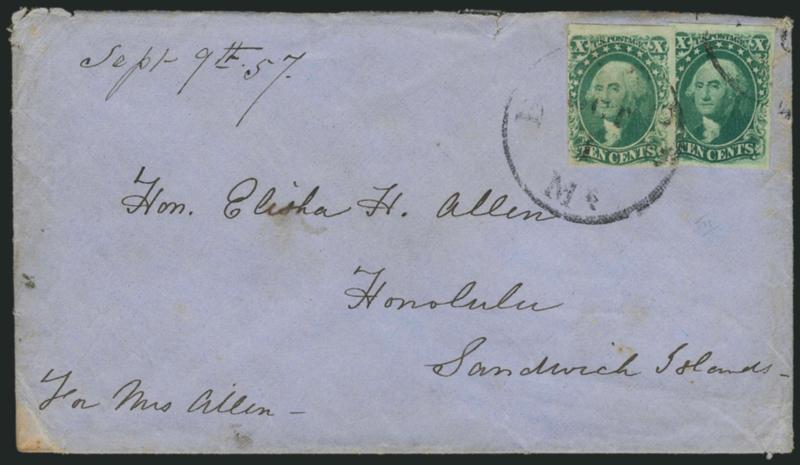 Sept 9th. 57.
X U.S. POSTAGE X
TEN CENTS
X U.S. POSTAGE X
TEN CENTS
Hon. Elisha H. Allen
Honolulu
Sandwich Islands -
For Mrs Allen -